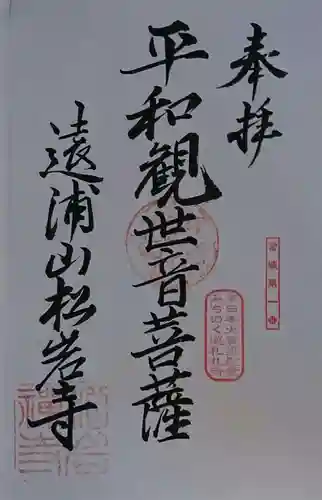 奉拝
平和観世音菩薩
遠浦山松岩寺
宮城第一番